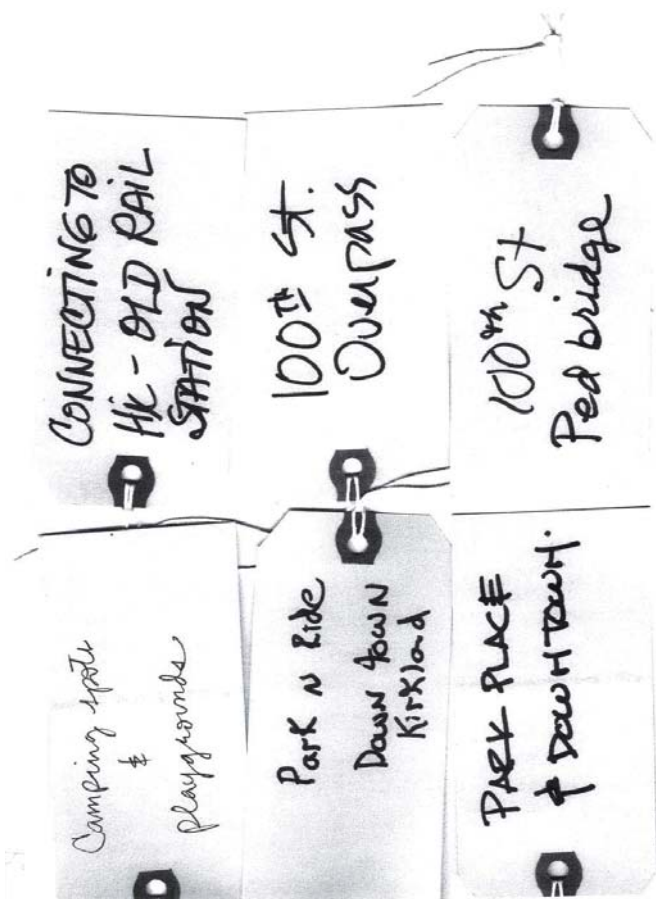 CONNECTING TO
THE - OLD RAIL
STATION
100TH St.
Overpass
100th St
Ped bridge
Camping spots
&
playgrounds
Park N Ride
Down town
Kirkland
PARK PLACE
& DOWNTOWN.